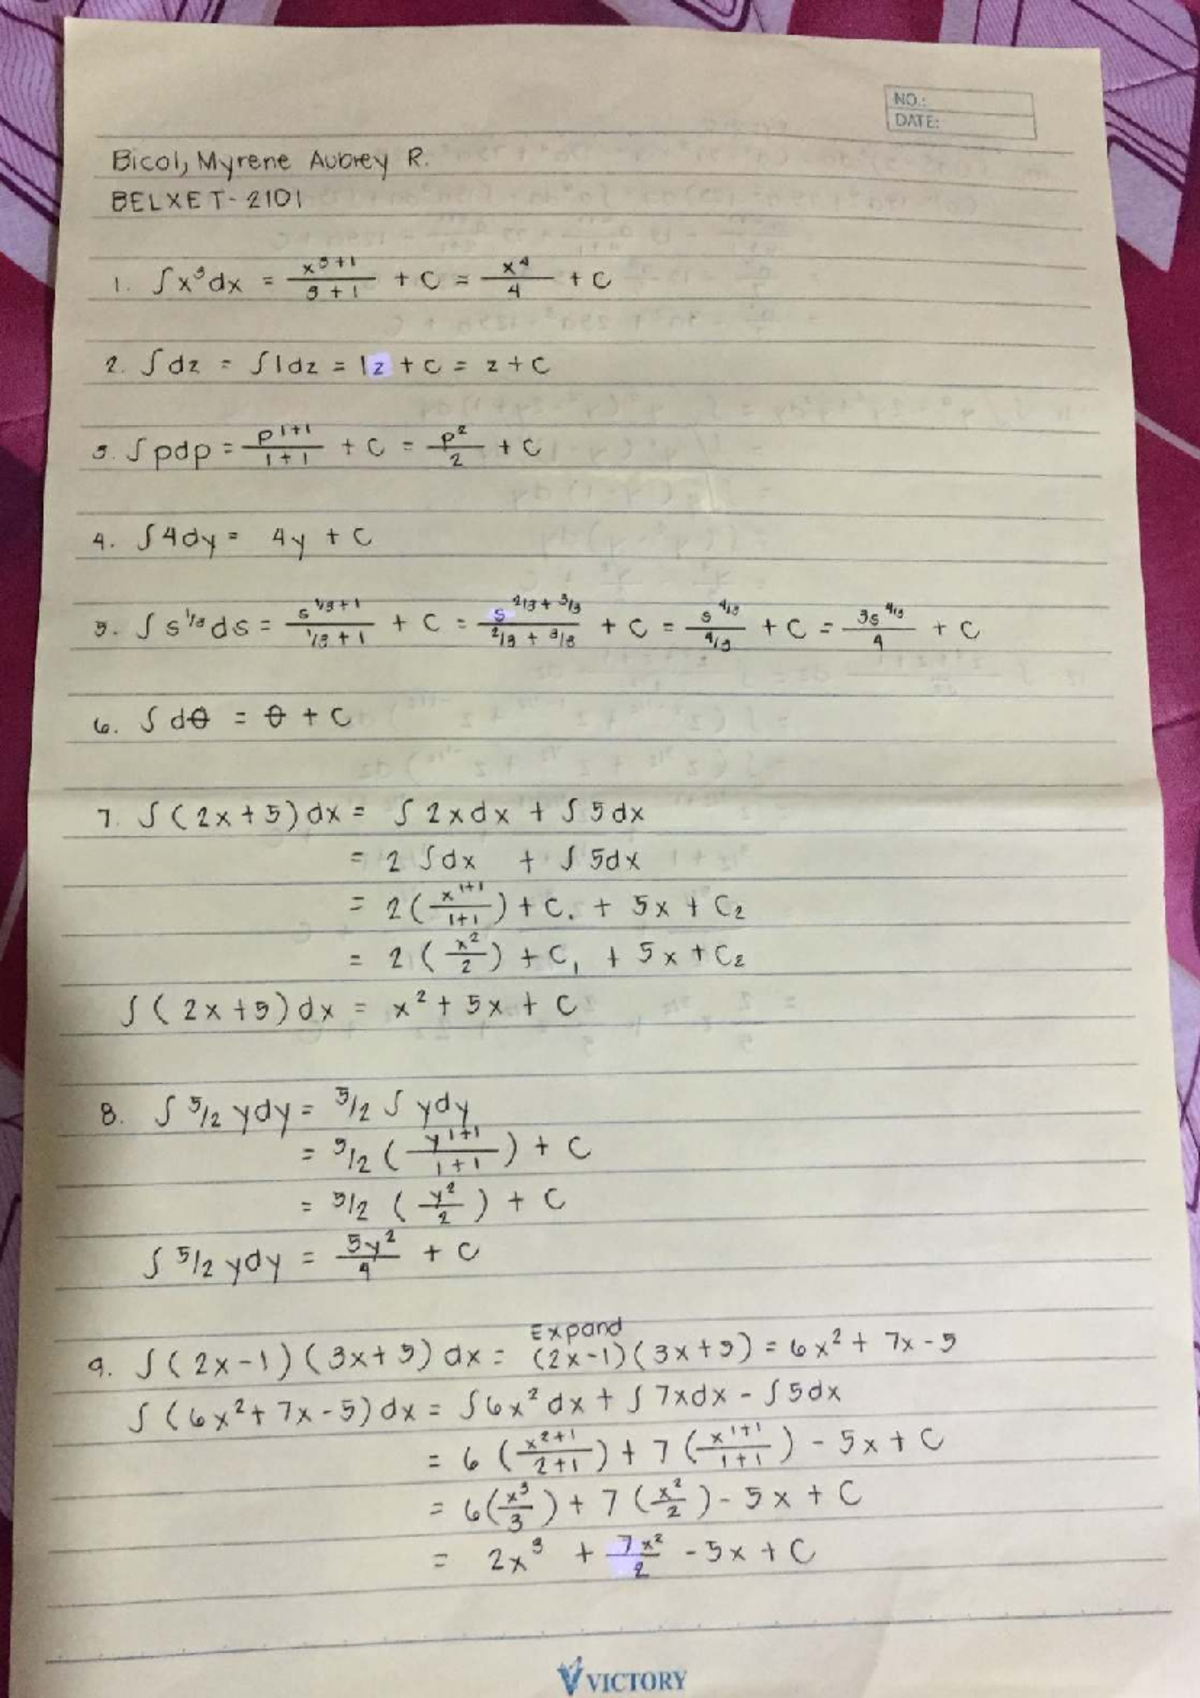 NO.:
DATE:
Bicol, Myrene Aubrey R.
BELXET-2101
1. ∫x³dx = x³⁺¹/3+1 + C = x⁴/4 + C
2. ∫dz = ∫1dz = 1z + C = z + C
3. ∫pdp = p¹⁺¹/1+1 + C = p²/2 + C
4. ∫4dy = 4y + C
5. ∫s^1/3 ds = s^1/3+1 / 1/3+1 + C = s^2/3+3/3 / 2/3+3/3 + C = s^4/3 / 4/3 + C = 3s^4/3 / 4 + C
6. ∫dθ = θ + C
7. ∫(2x+5)dx = ∫2xdx + ∫5dx
= 2∫dx + ∫5dx
= 2(x¹⁺¹/1+1) + C₁ + 5x + C₂
= 2(x²/2) + C₁ + 5x + C₂
∫(2x+5)dx = x² + 5x + C
8. ∫5/2 ydy = 5/2 ∫ydy
= 5/2 (y¹⁺¹/1+1) + C
= 5/2 (y²/2) + C
∫5/2 ydy = 5y²/4 + C
Expand
9. ∫(2x-1)(3x+5)dx = (2x-1)(3x+5) = 6x² + 7x - 5
∫(6x²+7x-5)dx = ∫6x²dx + ∫7xdx - ∫5dx
= 6(x²⁺¹/2+1) + 7(x¹⁺¹/1+1) - 5x + C
= 6(x³/3) + 7(x²/2) - 5x + C
= 2x³ + 7x²/2 - 5x + C
VICTORY